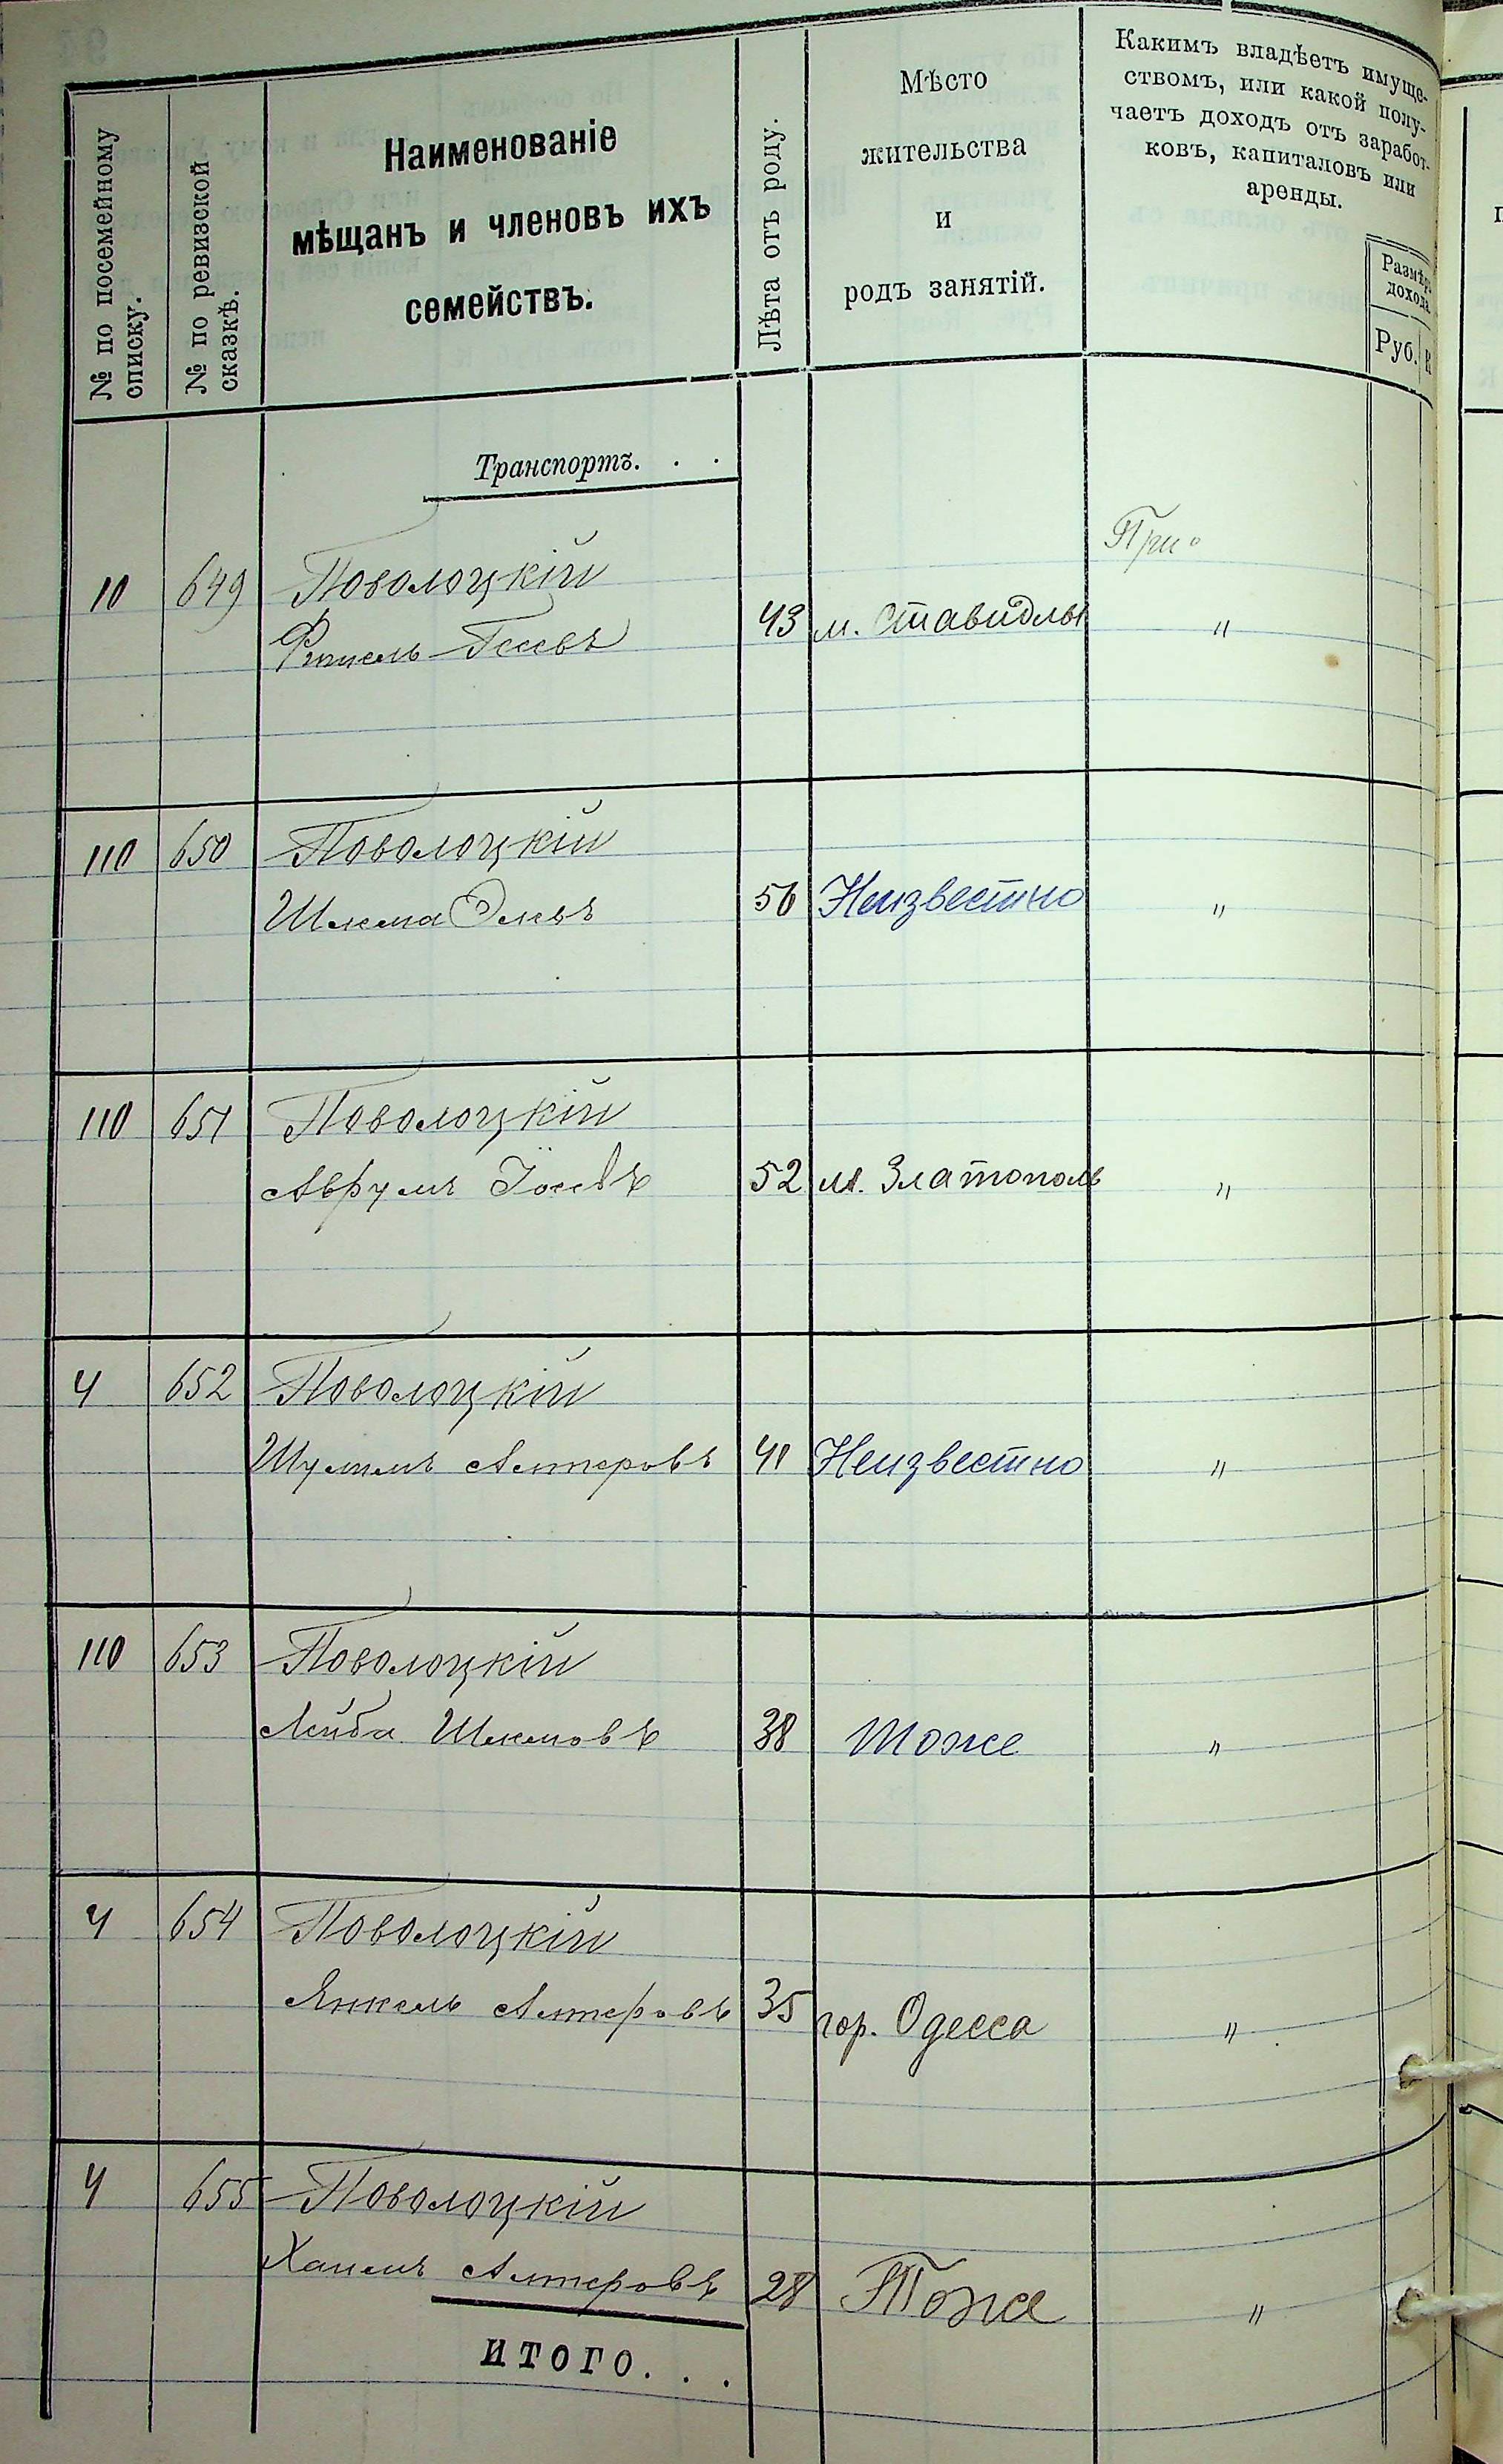 № по посемейному
списку.
№ по ревизской
сказкѣ.
Наименованіе
мѣщанъ и членовъ ихъ
семействъ.
Лѣта отъ роду.
Мѣсто
жительства
и
родъ занятій.
Какимъ владѣетъ имуще-
ствомъ, или какой полу-
чаетъ доходъ отъ заработ-
ковъ, капиталовъ или
аренды.
Размѣръ
дохода
Руб. К
Транспортъ. . .
При
10 649 Поволоцкій
Фишель 43 м. Ставидлы "
110 650 Поволоцкій
Шлема 56 Неизвестно "
110 651 Поволоцкій
Аврумъ Іосевъ 52 м. Златополь "
4 652 Поволоцкій
Шулимъ Алтеровъ 41 Неизвестно "
110 653 Поволоцкій
Лейба Шлемовъ 38 Тоже "
4 654 Поволоцкій
Янкель Алтеровъ 35 гор. Одесса "
4 655 Поволоцкій
Хаимъ Алтеровъ 28 Тоже "
ИТОГО. . .